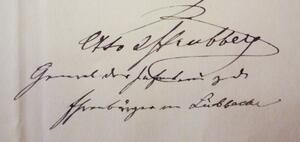 Otto
General der Infanterie z. D.
Ehrenbürger von Lübbecke